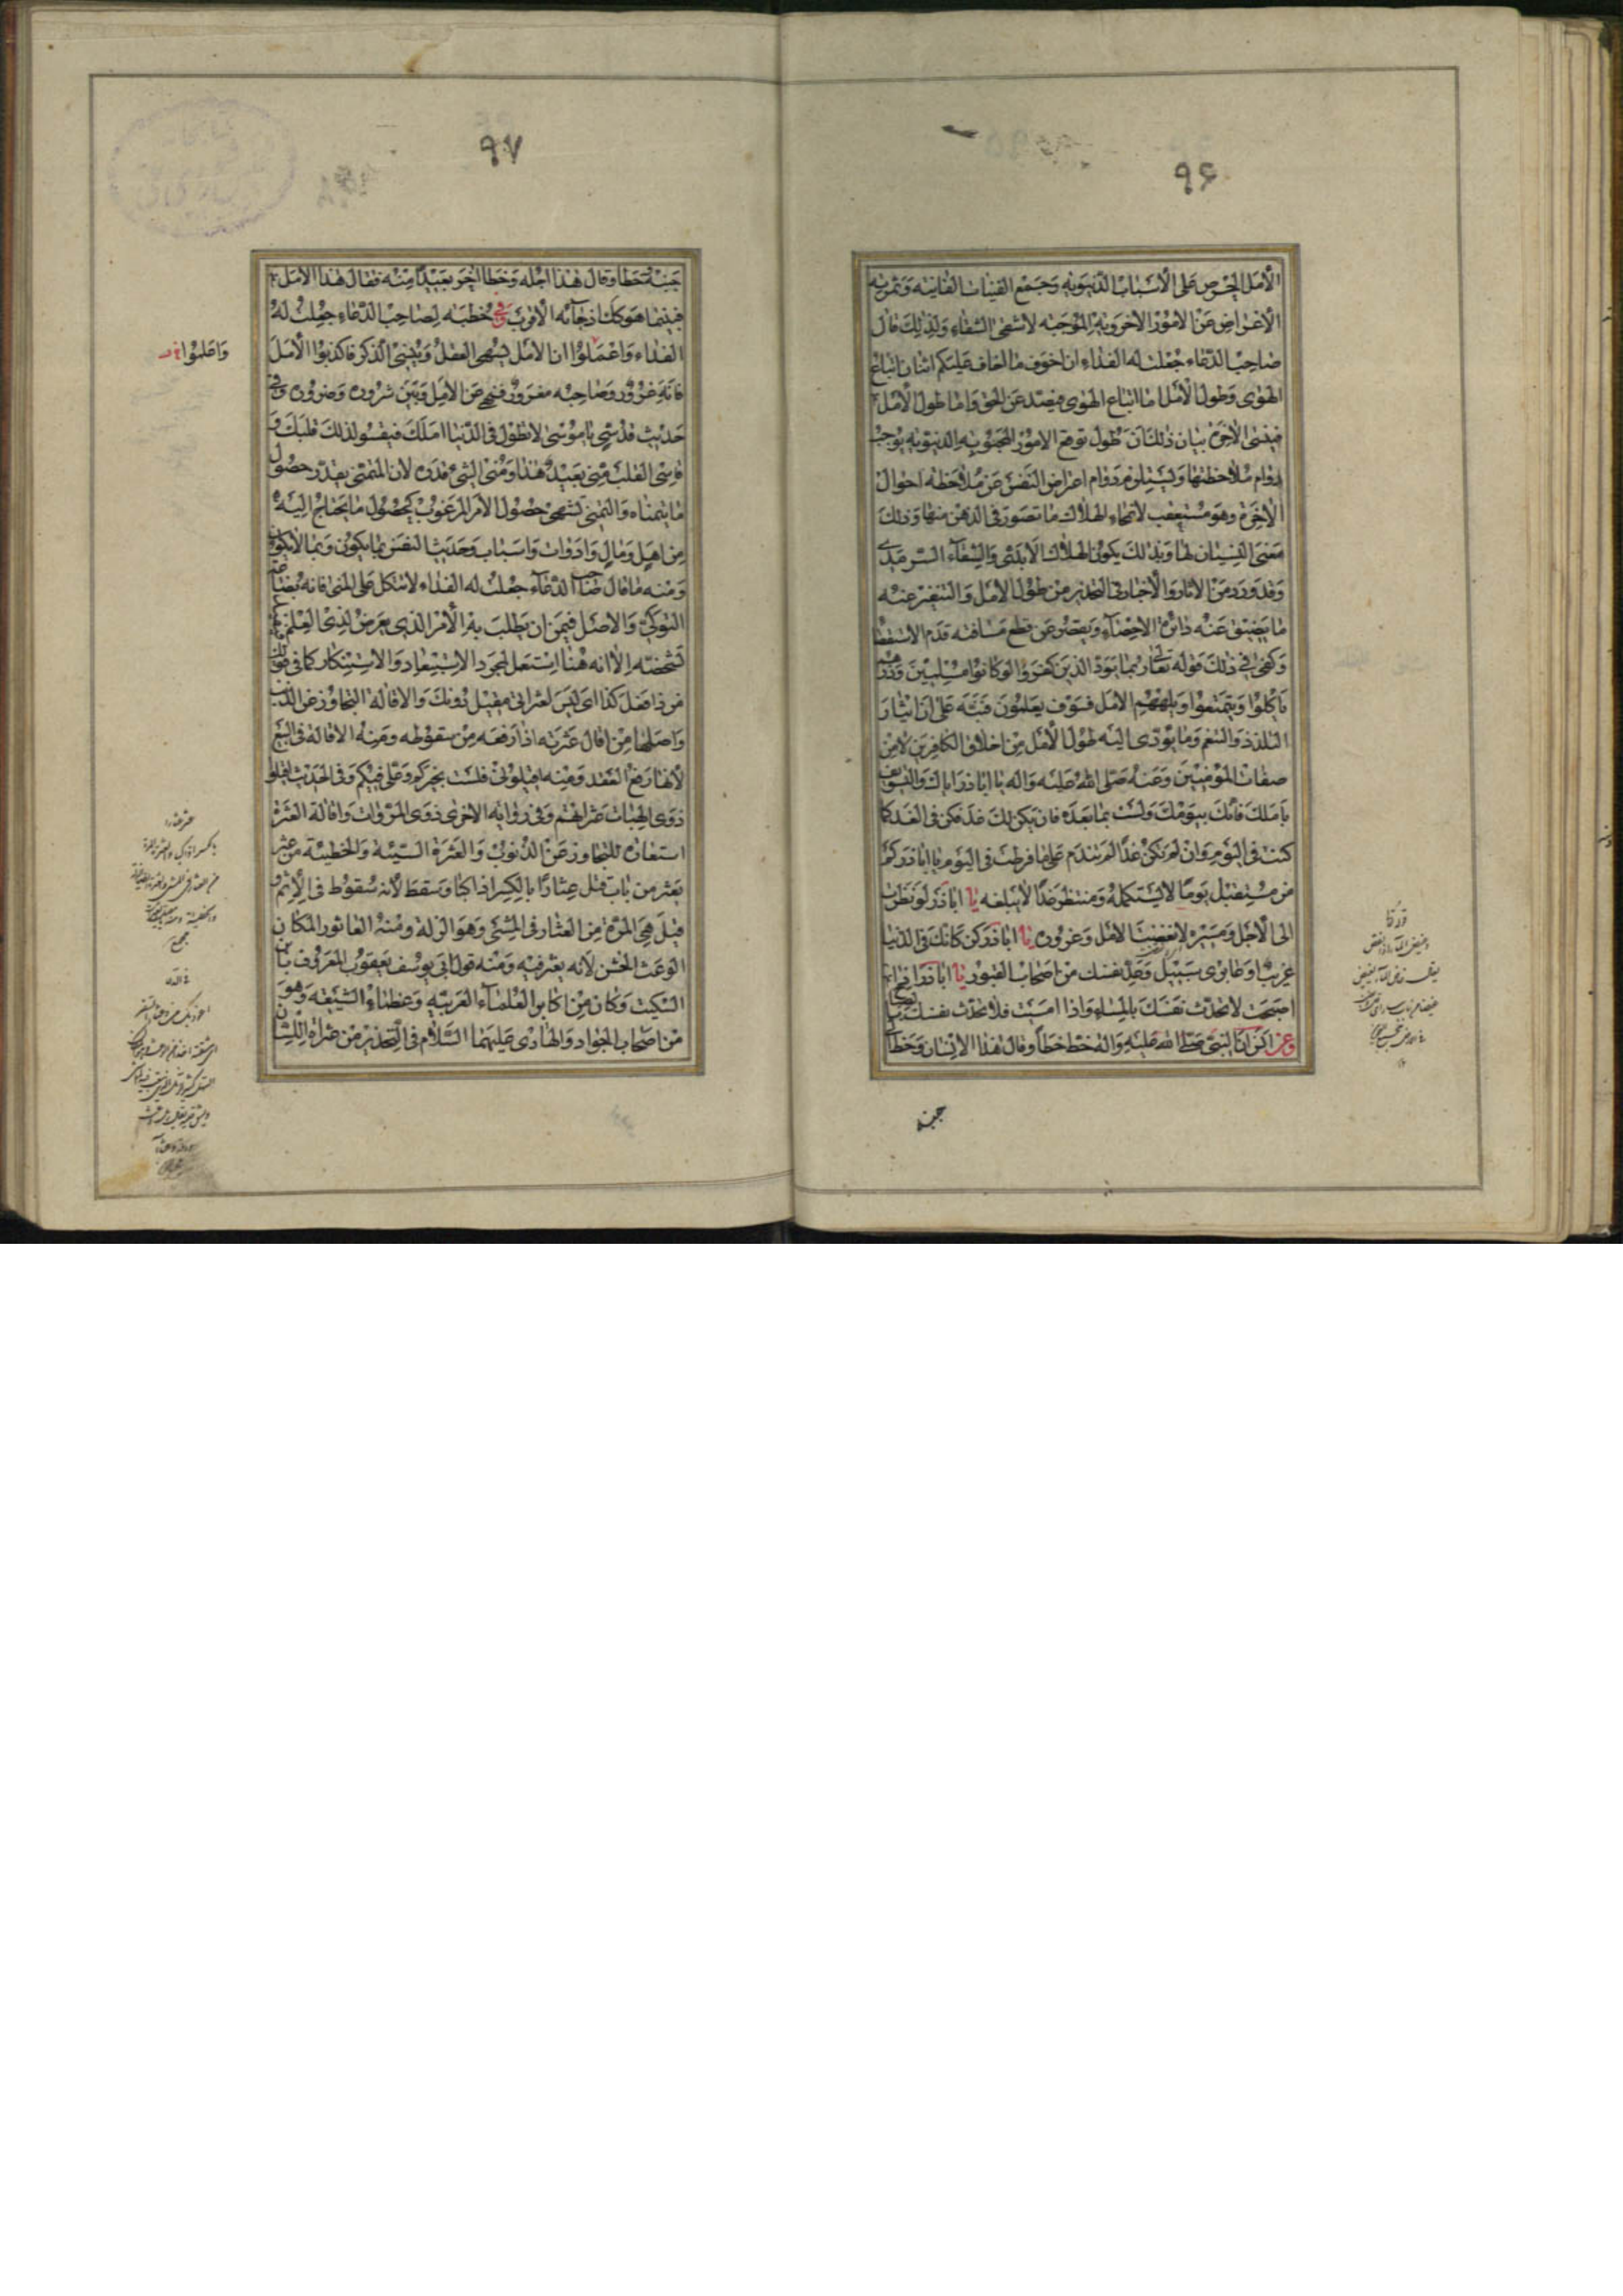 ۹۶
الأمل الحرص على الأسباب الدنيوية وجمع القينات الفانية وثمرته
الاعراض عن الامور الاخروية الموجبة لاشقى الشقاء ولذلك قال
صاحب الدعاء جعلت له الفداء ان اخوف ما اخاف عليكم اثنان اتباع
الهوى وطول الأمل اما اتباع الهوى فيصد عن الحق واما طول الأمل
فينسى الآخرة بيان ذلك ان طول توقع الامور المحبوبة الدنيوية يوجب
دوام ملاحظتها ويستلزم دوام اعراض النفس عن ملاحظة احوال
الآخرة وهو مستعقب لانمحاء لها لأن ما تصور في الذهن منها وذلك
معنى النسيان لها وبذلك يكون الهلاك الأبدي والشقاء السرمدي
وقد ورد من الآثار والأخبار في التحذير من طول الأمل والتنفير عنه
ما يضيق عنه دائرة الاحصاء ويقصر عن قطع مسافته قدم الاستقصا
وكفى في ذلك قوله تعالى ربما يود الذين كفروا لو كانوا مسلمين ذرهم
يأكلوا ويتمتعوا ويلههم الامل فسوف يعلمون فنبه على ان ايثار
التلذذ والتنعم وما يؤدى اليه طول الأمل من اخلاق الكافرين لا من
صفات المؤمنين وعنه صلى الله عليه واله يا اباذر اياك والتسويف
بأملك فانك بيومك ولست بما بعده فان يكن لك غد فكن في الغد كما
كنت في اليوم وان لم تكن غدا لم تندم على ما فرطت في اليوم يا اباذر كم
من مستقبل يوما لا يستكمله ومنتظر غدا لا يبلغه يا اباذر لو نظرت
الى الأجل ومسيره لابغضت الامل وغروره يا اباذر كن كانك في الدنيا
غريب او عابرى سبيل وعد نفسك من اصحاب القبور يا اباذر اذا
اصبحت لا تحدث نفسك بالمساء واذا امسيت فلا تحدث نفسك بالصباح
وعن انس ان النبي صلى الله عليه واله خط خطا وقال هذا الانسان وخط الى
جنبه
۹۷
جنبه خطا وقال هذا اجله وخط اخر بعيدا منه فقال هذا الأمل
فبينما هو كذلك اذ جاءه الأقرب وفي خطبه لصاحب الدعاء جعلت له
الفداء واعملوا ان الامل يسهى العقل وينسى الذكر فاكذبوا الأمل
فانه غرور وصاحبه مغرور فنهى عن الأمل وبين شروره وضروره وفي
حديث قدسي يا موسى لا تطول في الدنيا املك فيقسو لذلك قلبك و
قاسى القلب منى بعيد هذا ومنى الشيء قدره لان المتمني يقدر حصول
ما يتمناه والتمني تشهى حصول الأمر المرغوب كحصول ما يحتاج اليه
من اهل ومال وادوات واسباب وحديث النفس بما يكون وبما لا يكون
ومنه ما قال صاحب الدعاء جعلت له الفداء لا تتكل على المنى فانه بضائع
النوكى والاصل فيمن ان يطلب به الأمر الذي يعرض لذى العلم
تشخصه الا انه هنا استعمل لمجرد الاستبعاد والاستنكار كما في قولك
من ذا فعل كذا اى ليس لعثراتي مقيل دونك والاقالة التجاوز عن الذنب
واصلها من اقال عثرته اذا رفعه من سقوطه ومنه الاقالة في البيع
لأنها رفع العقد ومنه اقيلوني فلست بخيركم وعلى فيكم وفي الحديث اقيلوا
ذوى الهيئات عثراتهم وفي رواية الاخرى ذوى المروات واقالة العثرة
استعارة للتجاوز عن الذنوب والعثرة السيئة والخطيئة من عثر
يعثر من باب قتل عثارا بالكسر اذا كبا وسقط لأنه سقوط في الاثم و
قيل هي المرة من العثار في المشي وهو الزلة ومنه العاثور المكان
الوعث الخشن لأنه يعثر فيه ومنه قول ابي يوسف يعقوب المعروف بابن
السكيت وكان من اكابر العلماء العربية وعظماء الشيعة وهو
من اصحاب الجواد والهادى عليهما السلام في التحذير من عثرات اللسان
واعلموا